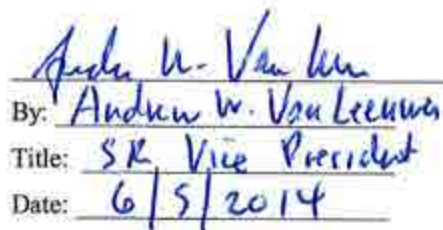 Andrew W. Van Leeuwen
By: Andrew W. Van Leeuwen
Title: SR Vice President
Date: 6/5/2014